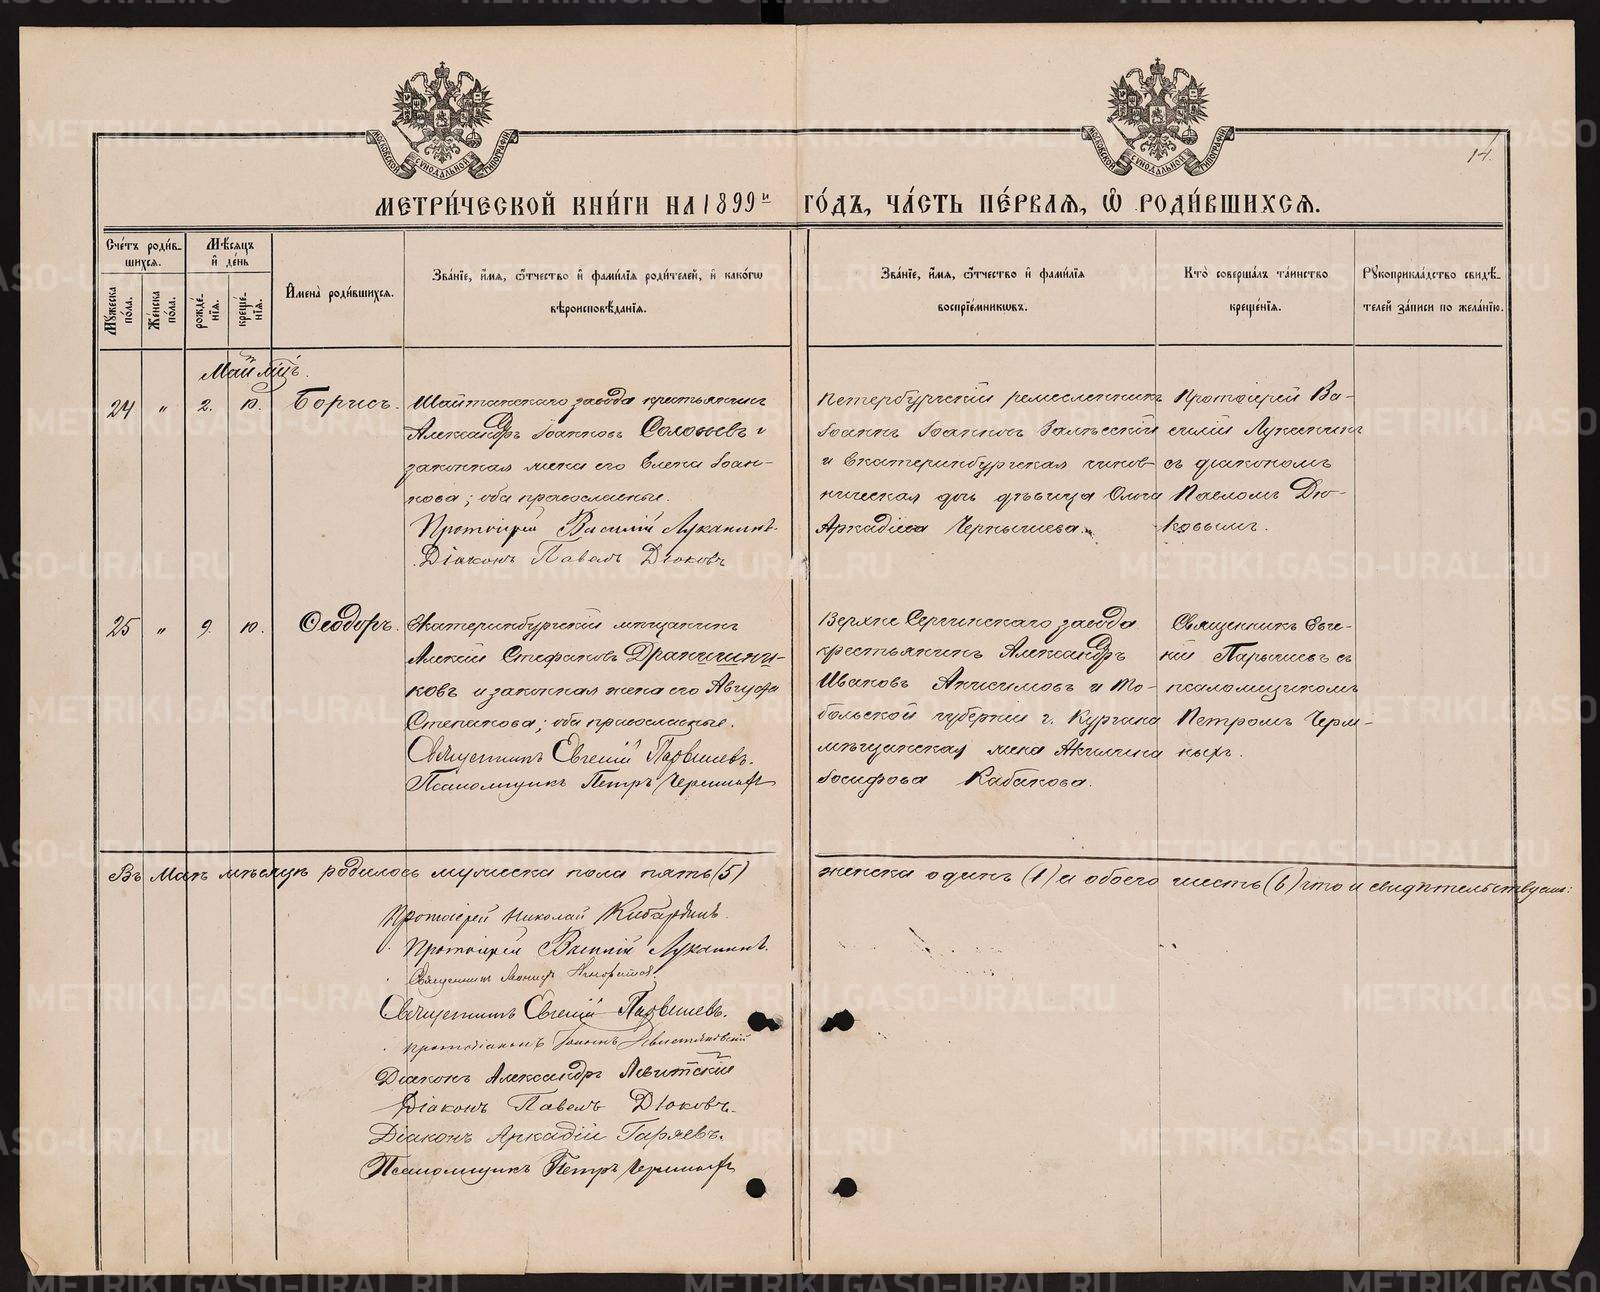 14.
МЕТРИ́ЧЕСКОЙ КНИ́ГИ НА 1899й ГО́ДЪ, ЧА́СТЬ ПЕ́РВАЯ, Ѡ РОДИ́ВШИХСѦ.
Сче́тъ роди́вшихсѧ.
Мѣ́сѧцъ и҆ де́нь
Мꙋ́жеска по́ла.
Же́нска по́ла.
рожде́нїѧ.
креще́нїѧ.
И҆мена̀ роди́вшихсѧ.
Зва́нїе, и҆́мѧ, ѻ҆́тчество и҆ фами́лїѧ роди́телей, и҆ како́гѡ
вѣроисповѣ́данїѧ.
Зва́нїе, и҆́мѧ, ѻ҆́тчество и҆ фами́лїѧ
воспрїе́мникѡвъ.
Кто̀ соверша́лъ та́инство
креще́нїѧ.
Рꙋкоприкла́дство свидѣ́телей за́писи по жела́нїю.
Май мц҃ъ.
24 " 2. 10. Борисъ.
Шайтанскаго завода крестьянинъ
Александръ Іоанновъ Соловьевъ и
законная жена его Елена Іоан-
нова; оба православные.
Протоіерей Василій Луканинъ.
Діаконъ Павелъ Дюковъ
Петербургскій ремесленникъ
Іоаннъ Іоанновъ Залѣсскій
и Екатеринбургская чинов-
ническая дочь дѣвица Ольга
Аркадіева Чернышева.
Протоіерей Ва-
силій Луканинъ
съ діакономъ
Павломъ Дю-
ковымъ.
25 " 9. 10. Ѳеодоръ.
Екатеринбургскій мѣщанинъ
Алексій Стефановъ Дранишни-
ковъ и законная жена его Августа
Степанова; оба православные.
Священникъ Евгеній Парышевъ.
Псаломщикъ Петръ Черемныхъ
Верхне Сергинскаго завода
крестьянинъ Александръ
Ивановъ Анисимовъ и То-
больской губерніи г. Кургана
мѣщанская жена Акилина
Іосифова Кабакова.
Священникъ Евге-
ній Парышевъ съ
псаломщикомъ
Петромъ Черм-
ныхъ.
Въ Маѣ мѣсяцѣ родилось мужеска пола пять (5) женска одинъ (1) и обоего шесть (6) что и свидѣтельствуемъ:
Протоіерей Николай Кибардинъ.
Протоіерей Василій Луканинъ.
Священникъ
Священникъ Евгеній Парышевъ.
Протодіаконъ Іоаннъ
Діаконъ Александръ Левитскій
Діаконъ Павелъ Дюковъ.
Діаконъ Аркадій Гаряевъ.
Псаломщикъ Петръ Черемныхъ
METRIKI.GASO-URAL.RU